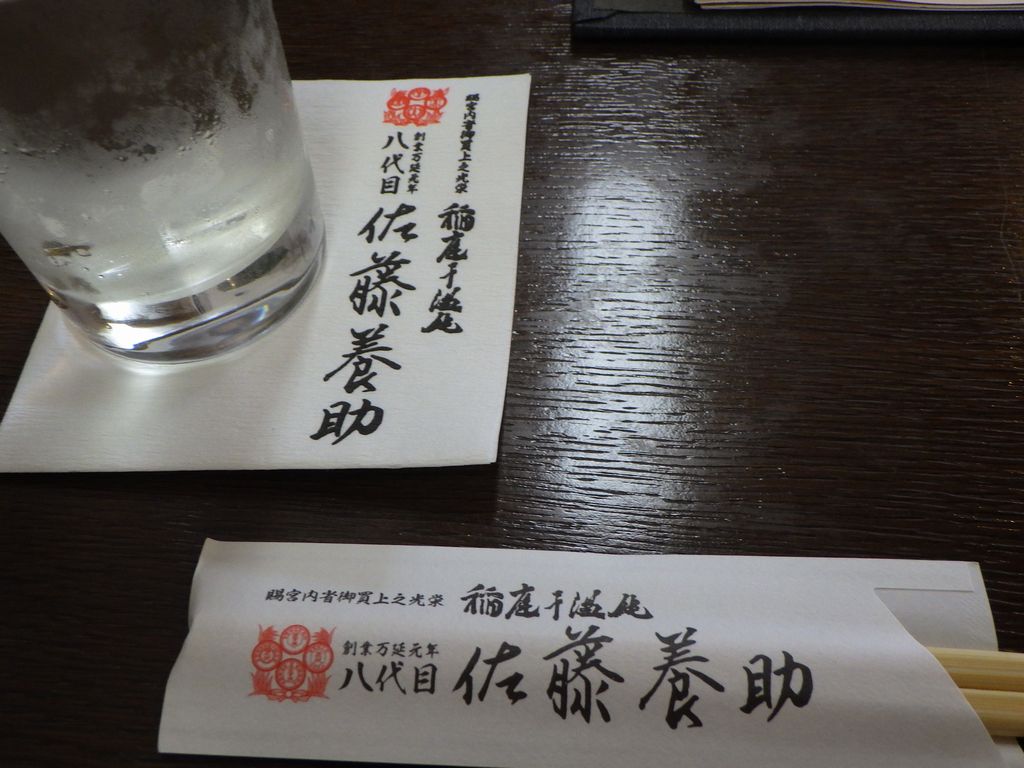 賜宮内省御買上之光栄
稲庭干温飩
創業万延元年
八代目 佐藤養助
賜宮内省御買上之光栄
稲庭干温飩
創業万延元年
八代目 佐藤養助